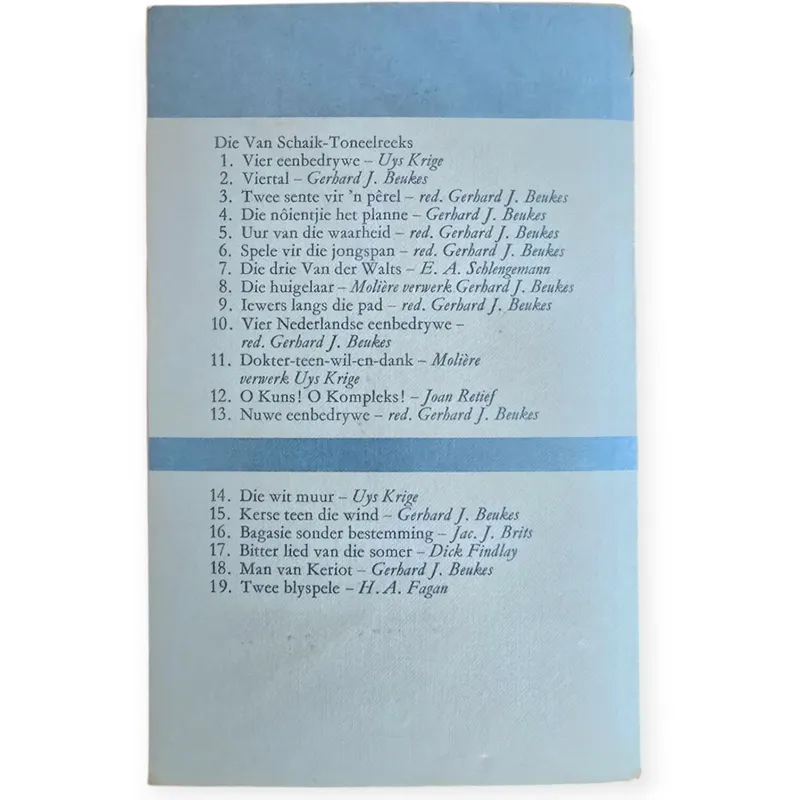 Die Van Schaik-Toneelreeks
1. Vier eenbedrywe – Uys Krige
2. Viertal – Gerhard J. Beukes
3. Twee sente vir 'n pêrel – red. Gerhard J. Beukes
4. Die nôientjie het planne – Gerhard J. Beukes
5. Uur van die waarheid – red. Gerhard J. Beukes
6. Spele vir die jongspan – red. Gerhard J. Beukes
7. Die drie Van der Walts – E. A. Schlengemann
8. Die huigelaar – Molière verwerk Gerhard J. Beukes
9. Iewers langs die pad – red. Gerhard J. Beukes
10. Vier Nederlandse eenbedrywe –
red. Gerhard J. Beukes
11. Dokter-teen-wil-en-dank – Molière
verwerk Uys Krige
12. O Kuns! O Kompleks! – Joan Retief
13. Nuwe eenbedrywe – red. Gerhard J. Beukes
14. Die wit muur – Uys Krige
15. Kerse teen die wind – Gerhard J. Beukes
16. Bagasie sonder bestemming – Jac. J. Brits
17. Bitter lied van die somer – Dick Findlay
18. Man van Keriot – Gerhard J. Beukes
19. Twee blyspele – H. A. Fagan